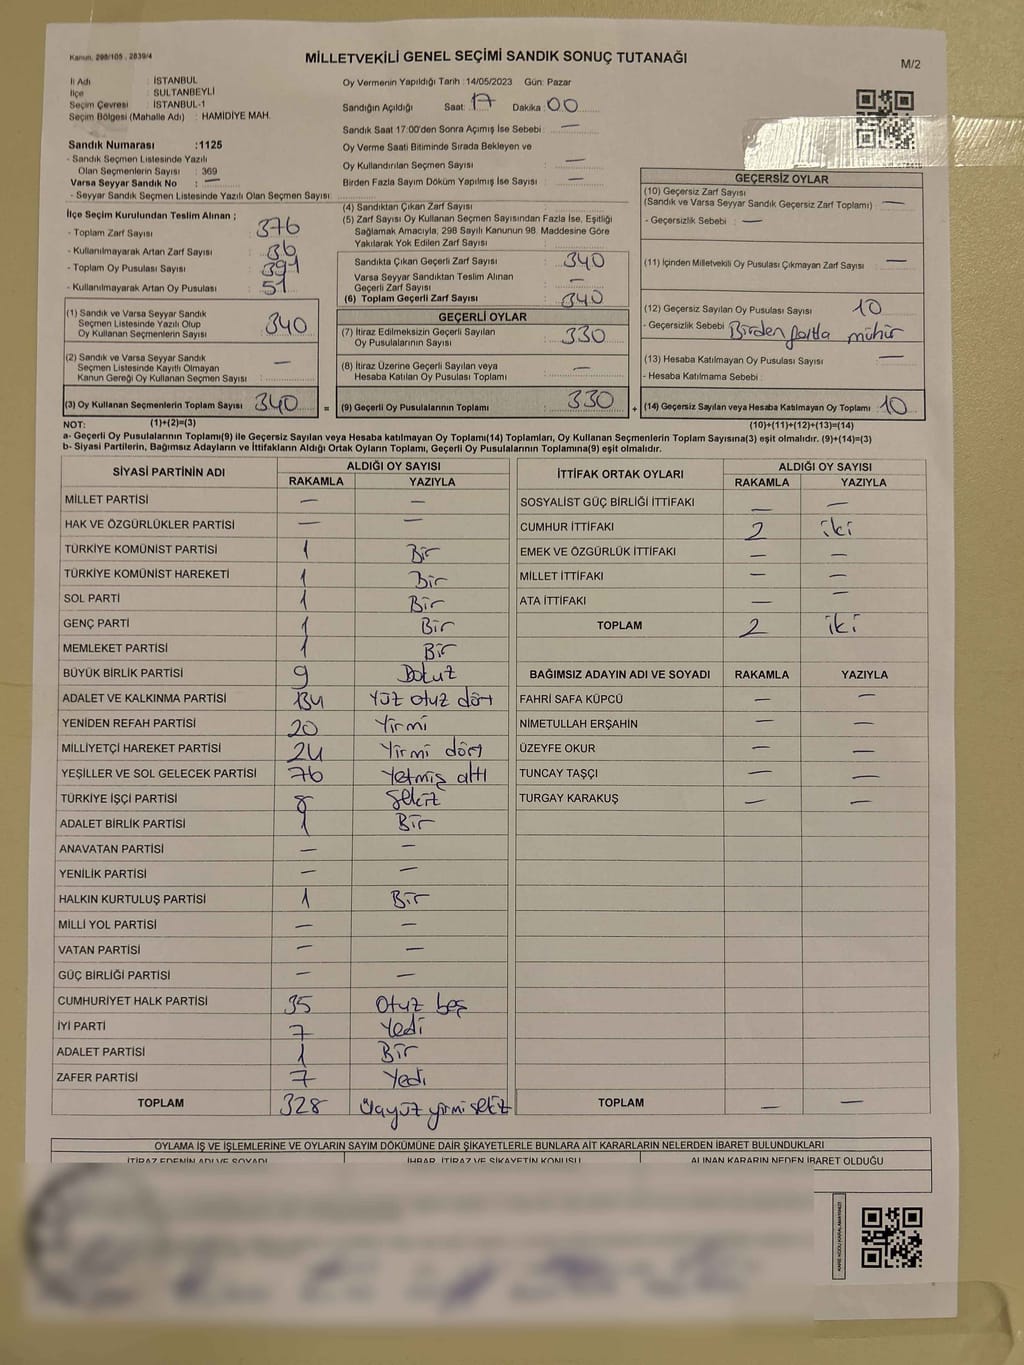 Kanun, 298/105 , 2839/4
MİLLETVEKİLİ GENEL SEÇİMİ SANDIK SONUÇ TUTANAĞI
M/2
İl Adı : İSTANBUL
İlçe : SULTANBEYLİ
Seçim Çevresi : İSTANBUL-1
Seçim Bölgesi (Mahalle Adı) : HAMİDİYE MAH.
Sandık Numarası :1125
- Sandık Seçmen Listesinde Yazılı
Olan Seçmenlerin Sayısı : 369
Varsa Seyyar Sandık No : —
- Seyyar Sandık Seçmen Listesinde Yazılı Olan Seçmen Sayısı :
Oy Vermenin Yapıldığı Tarih :14/05/2023 Gün: Pazar
Sandığın Açıldığı Saat: 17 Dakika: 00
Sandık Saat 17:00'den Sonra Açımış İse Sebebi : —
Oy Verme Saati Bitiminde Sırada Bekleyen ve
Oy Kullandırılan Seçmen Sayısı : —
Birden Fazla Sayım Döküm Yapılmış İse Sayısı : —
İlçe Seçim Kurulundan Teslim Alınan ;
- Toplam Zarf Sayısı : 376
- Kullanılmayarak Artan Zarf Sayısı : 36
- Toplam Oy Pusulası Sayısı : 391
- Kullanılmayarak Artan Oy Pusulası : 51
(1) Sandık ve Varsa Seyyar Sandık
Seçmen Listesinde Yazılı Olup
Oy Kullanan Seçmenlerin Sayısı : 340
(2) Sandık ve Varsa Seyyar Sandık
Seçmen Listesinde Kayıtlı Olmayan
Kanun Gereği Oy Kullanan Seçmen Sayısı : —
(3) Oy Kullanan Seçmenlerin Toplam Sayısı : 340
(4) Sandıktan Çıkan Zarf Sayısı :
(5) Zarf Sayısı Oy Kullanan Seçmen Sayısından Fazla İse, Eşitliği
Sağlamak Amacıyla; 298 Sayılı Kanunun 98. Maddesine Göre
Yakılarak Yok Edilen Zarf Sayısı :
Sandıkta Çıkan Geçerli Zarf Sayısı : 340
Varsa Seyyar Sandıktan Teslim Alınan
Geçerli Zarf Sayısı : —
(6) Toplam Geçerli Zarf Sayısı : 340
GEÇERLİ OYLAR
(7) İtiraz Edilmeksizin Geçerli Sayılan
Oy Pusulalarının Sayısı : 330
(8) İtiraz Üzerine Geçerli Sayılan veya
Hesaba Katılan Oy Pusulası Toplamı : —
= (9) Geçerli Oy Pusulalarının Toplamı : 330
GEÇERSİZ OYLAR
(10) Geçersiz Zarf Sayısı
(Sandık ve Varsa Seyyar Sandık Geçersiz Zarf Toplamı) : —
- Geçersizlik Sebebi : —
(11) İçinden Milletvekili Oy Pusulası Çıkmayan Zarf Sayısı : —
(12) Geçersiz Sayılan Oy Pusulası Sayısı : 10
- Geçersizlik Sebebi : Birden fazla mühür
(13) Hesaba Katılmayan Oy Pusulası Sayısı : —
- Hesaba Katılmama Sebebi :
+ (14) Geçersiz Sayılan veya Hesaba Katılmayan Oy Toplamı : 10
NOT: (1)+(2)=(3) (10)+(11)+(12)+(13)=(14)
a- Geçerli Oy Pusulalarının Toplamı(9) ile Geçersiz Sayılan veya Hesaba katılmayan Oy Toplamı(14) Toplamları, Oy Kullanan Seçmenlerin Toplam Sayısına(3) eşit olmalıdır. (9)+(14)=(3)
b- Siyasi Partilerin, Bağımsız Adayların ve İttifakların Aldığı Ortak Oyların Toplamı, Geçerli Oy Pusulalarının Toplamına(9) eşit olmalıdır.
SİYASİ PARTİNİN ADI ALDIĞI OY SAYISI
RAKAMLA YAZIYLA
MİLLET PARTİSİ — —
HAK VE ÖZGÜRLÜKLER PARTİSİ — —
TÜRKİYE KOMÜNİST PARTİSİ 1 Bir
TÜRKİYE KOMÜNİST HAREKETİ 1 Bir
SOL PARTİ 1 Bir
GENÇ PARTİ 1 Bir
MEMLEKET PARTİSİ 1 Bir
BÜYÜK BİRLİK PARTİSİ 9 Dokuz
ADALET VE KALKINMA PARTİSİ 134 Yüz otuz dört
YENİDEN REFAH PARTİSİ 20 Yirmi
MİLLİYETÇİ HAREKET PARTİSİ 24 Yirmi dört
YEŞİLLER VE SOL GELECEK PARTİSİ 76 Yetmiş altı
TÜRKİYE İŞÇİ PARTİSİ 8 Sekiz
ADALET BİRLİK PARTİSİ 1 Bir
ANAVATAN PARTİSİ — —
YENİLİK PARTİSİ — —
HALKIN KURTULUŞ PARTİSİ 1 Bir
MİLLİ YOL PARTİSİ — —
VATAN PARTİSİ — —
GÜÇ BİRLİĞİ PARTİSİ — —
CUMHURİYET HALK PARTİSİ 35 Otuz beş
İYİ PARTİ 7 Yedi
ADALET PARTİSİ 1 Bir
ZAFER PARTİSİ 7 Yedi
TOPLAM 328 Üçyüz yirmi sekiz
İTTİFAK ORTAK OYLARI ALDIĞI OY SAYISI
RAKAMLA YAZIYLA
SOSYALİST GÜÇ BİRLİĞİ İTTİFAKI — —
CUMHUR İTTİFAKI 2 iki
EMEK VE ÖZGÜRLÜK İTTİFAKI — —
MİLLET İTTİFAKI — —
ATA İTTİFAKI — —
TOPLAM 2 iki
BAĞIMSIZ ADAYIN ADI VE SOYADI RAKAMLA YAZIYLA
FAHRİ SAFA KÜPCÜ — —
NİMETULLAH ERŞAHİN — —
ÜZEYFE OKUR — —
TUNCAY TAŞÇI — —
TURGAY KARAKUŞ — —
TOPLAM — —
OYLAMA İŞ VE İŞLEMLERİNE VE OYLARIN SAYIM DÖKÜMÜNE DAİR ŞİKAYETLERLE BUNLARA AİT KARARLARIN NELERDEN İBARET BULUNDUKLARI
İTİRAZ EDENİN ADI VE SOYADI İHBAR, İTİRAZ VE ŞİKAYETİN KONUSU ALINAN KARARIN NEDEN İBARET OLDUĞU